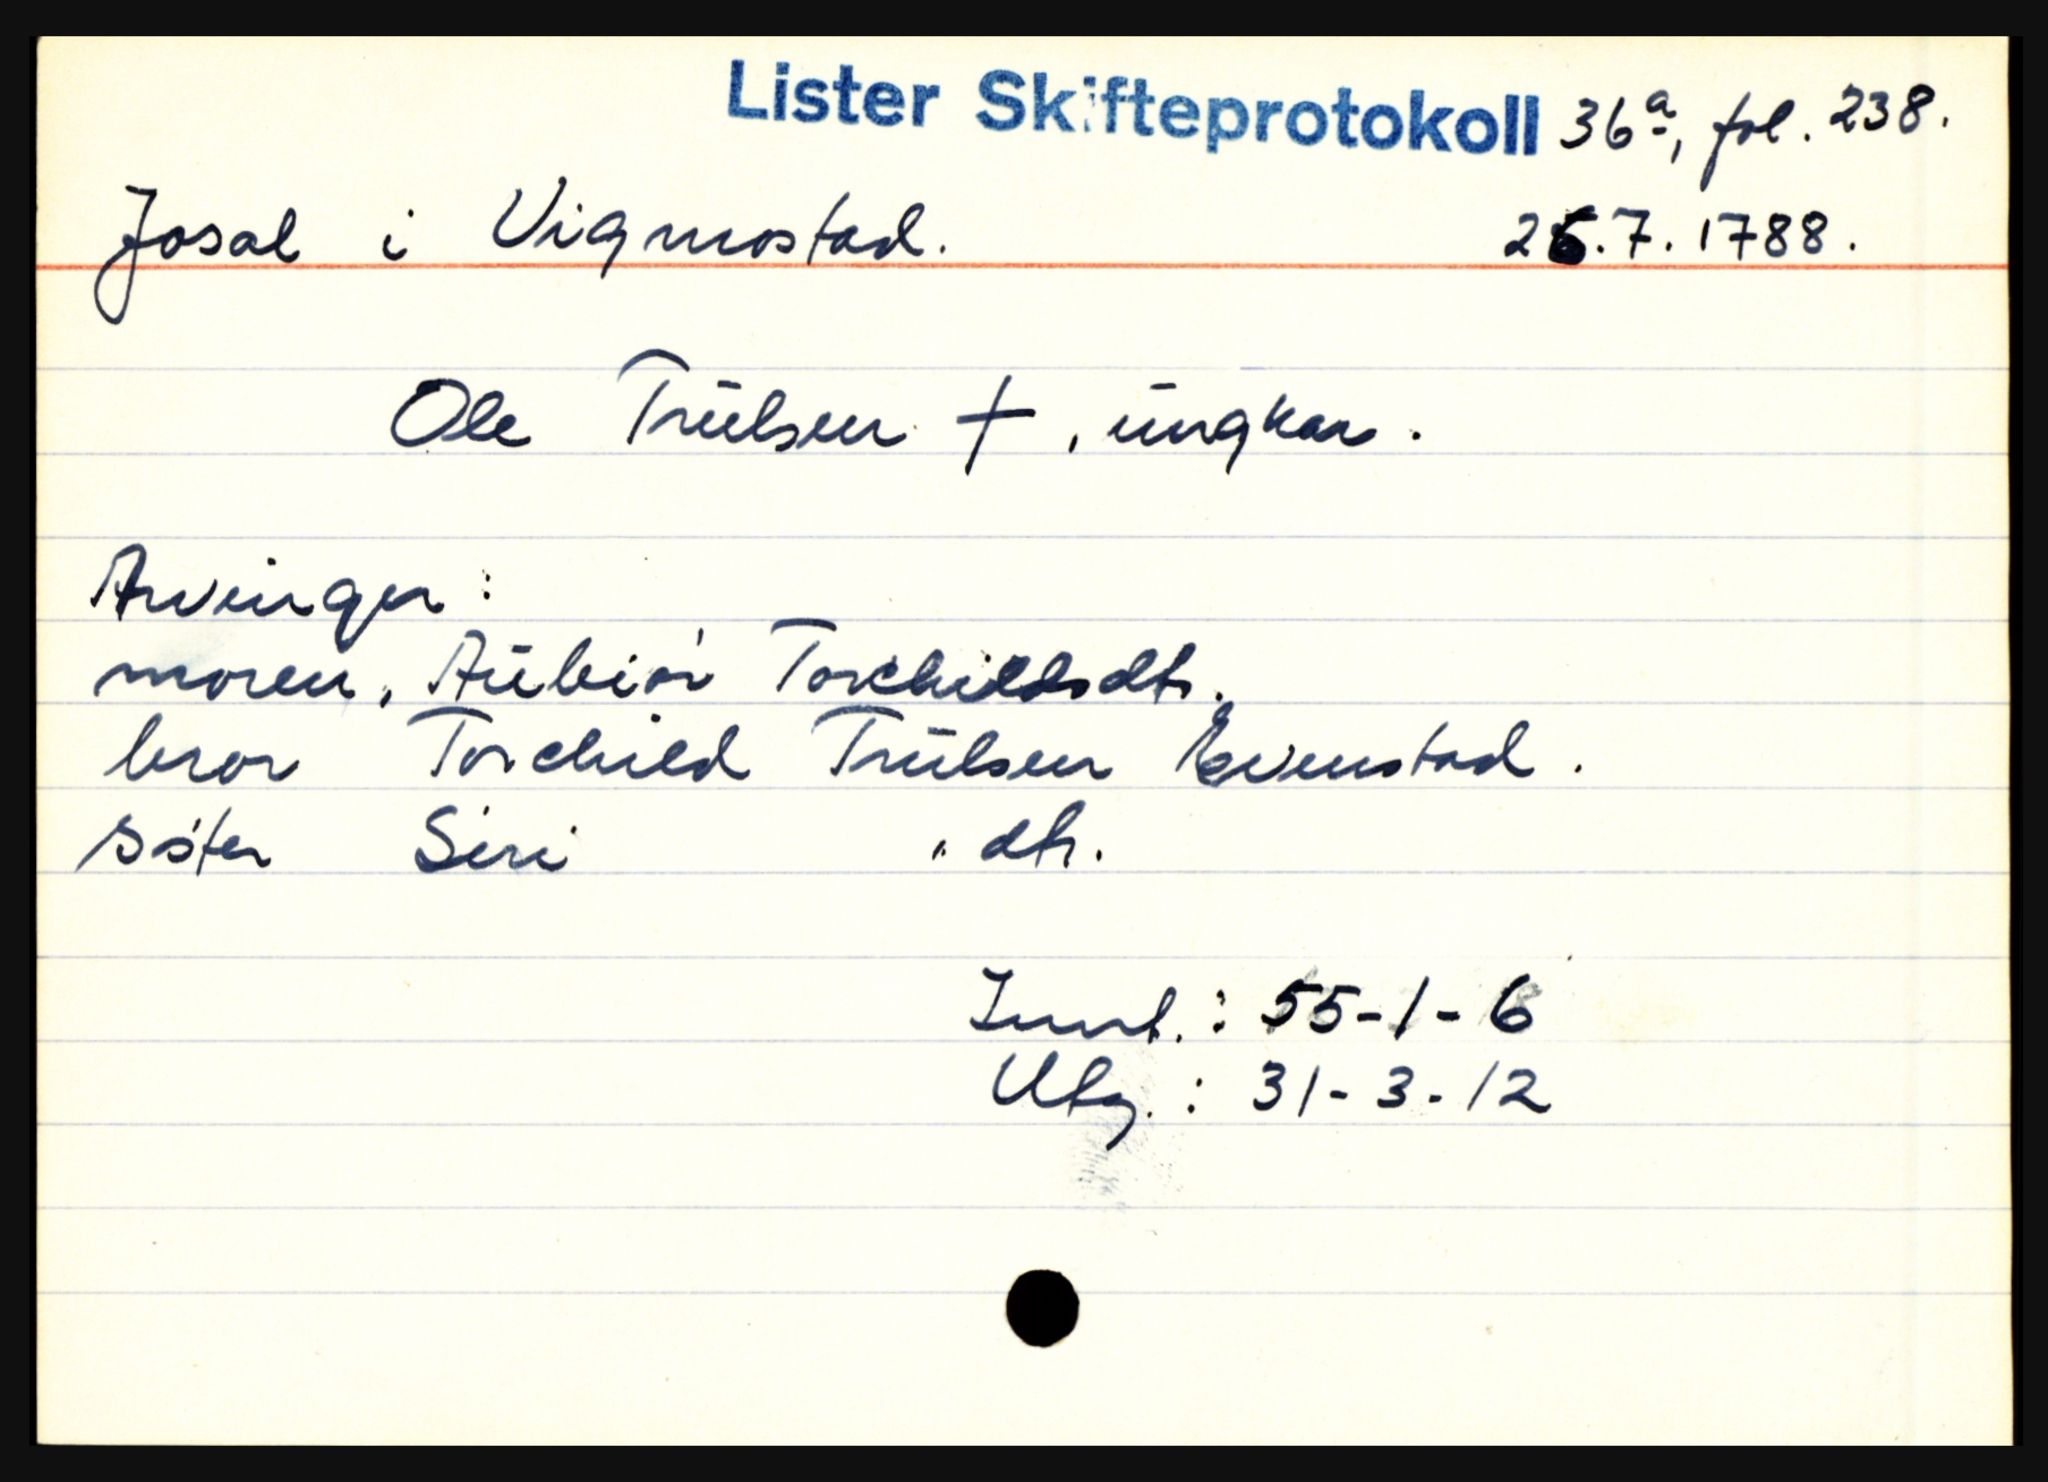 Lister Skifteprotokoll 36a, fol. 238.
Josal i Vigmostad. 26.7.1788.
Ole Trulsen †, ungkar.
Arvinger:
moren, Aubiör Torchildsdtr.
bror Torchild Trulsen Evenstad.
söster Siri " dtr.
Innt.: 55-1-6
Utg.: 31-3-12